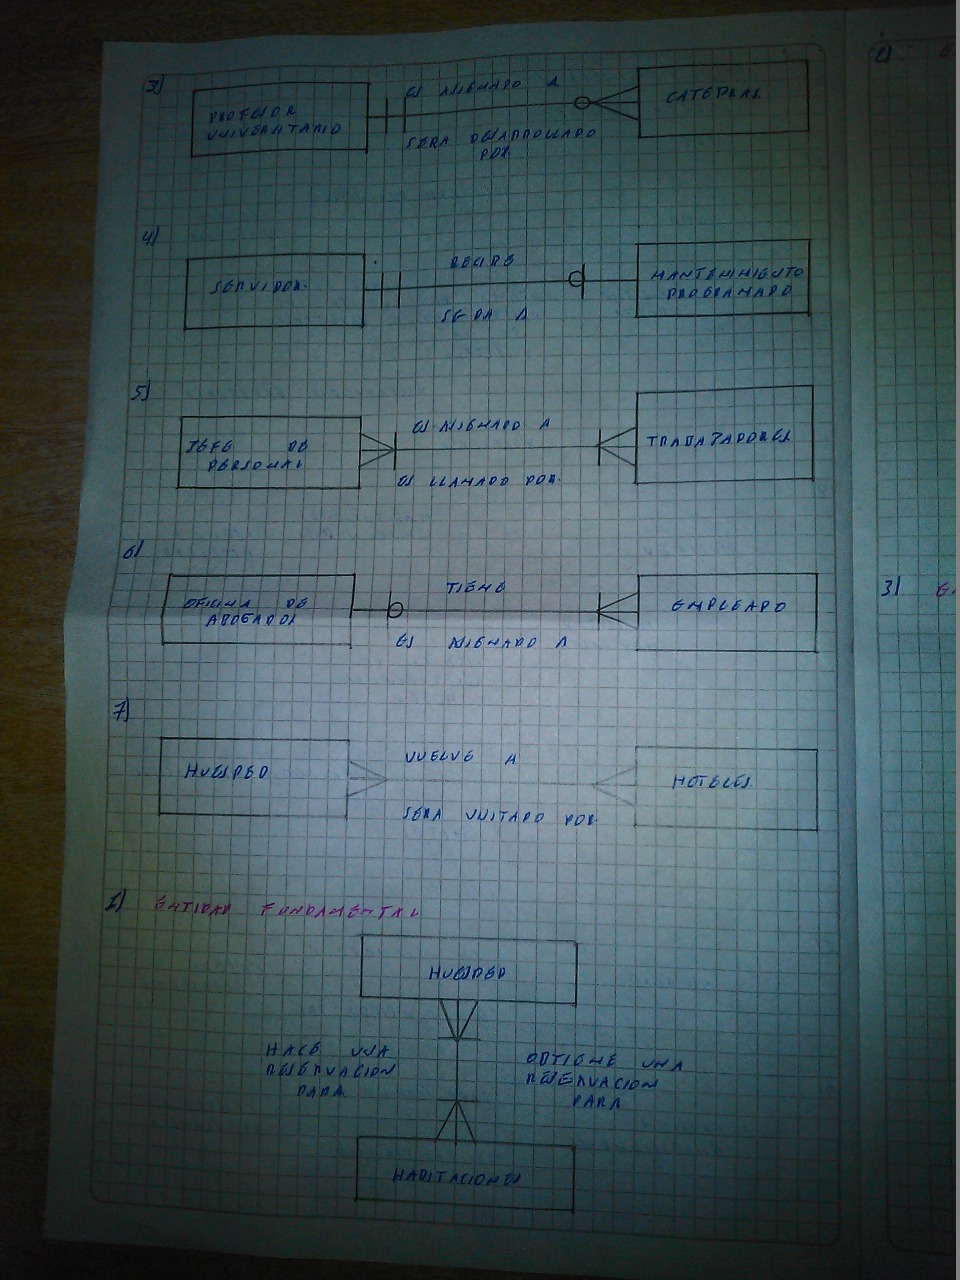 3)
PROFESOR
UNIVERSITARIO
ES ASIGNADO A
SERA DESARROLLADO
POR
CATEDRAS
4)
SERVIDOR
RECIBE
SERA A
MANTENIMIENTO
PROGRAMADO
5)
JEFE DE
PERSONAL
ES ASIGNADO A
ES LLAMADO POR
TRABAJADORES
6)
OFICINA DE
ABOGADOS
TIENE
ES ASIGNADO A
EMPLEADO
7)
HUESPED
VUELVE A
SERA VISITADO POR
HOTELES
1) ENTIDAD FUNDAMENTAL
HUESPED
HACE UNA
RESERVACION
PARA
OBTIENE UNA
RESERVACION
PARA
HABITACIONES
2)
3)